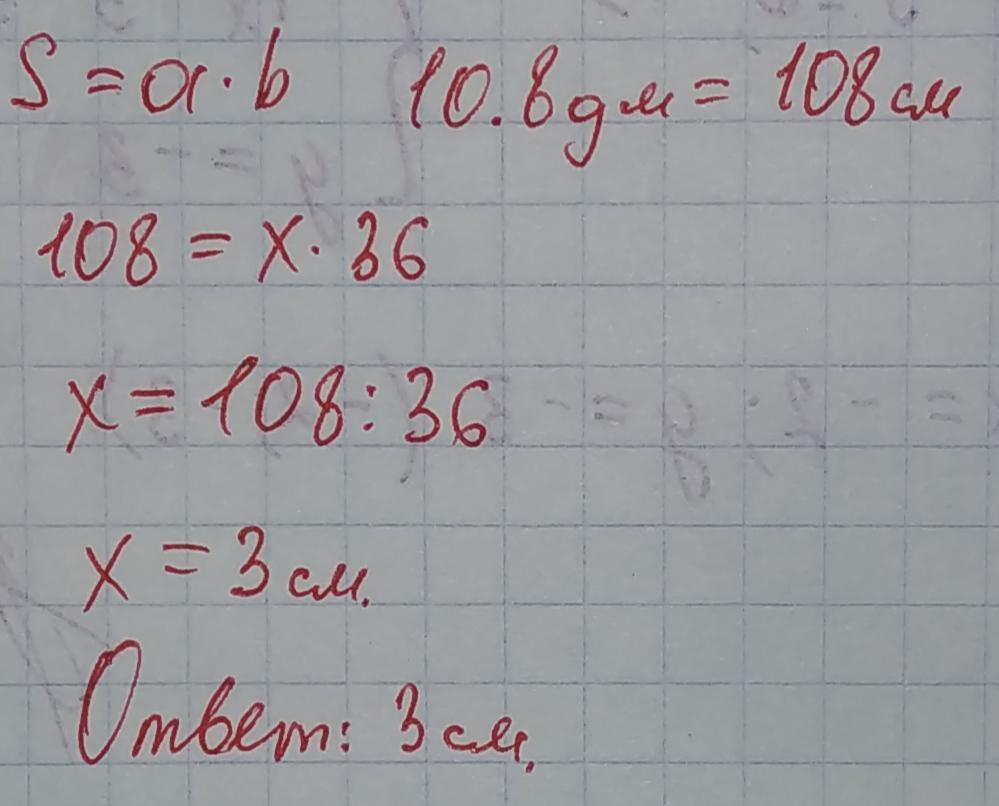 S = a · b 10.8 дм = 108 см
108 = x · 36
x = 108 : 36
x = 3 см.
Ответ: 3 см.